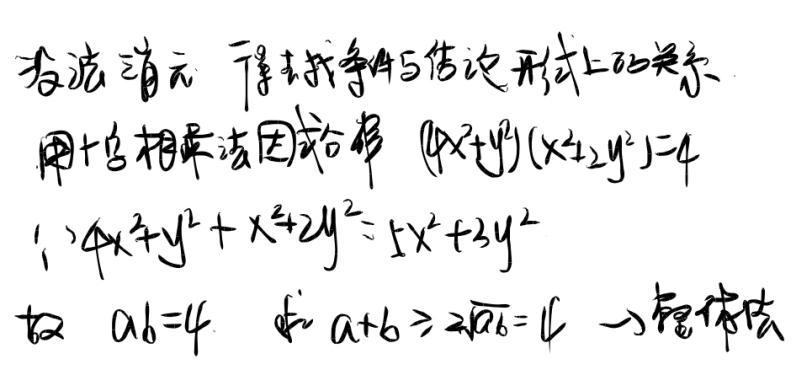 没法消元 得去找条件与结论形式上的关系
用十字相乘法因式分解 (4x²+y²)(x²+2y²)=4
∵ 4x²+y²+x²+2y²=5x²+3y²
故 ab=4 求 a+b≥2√ab=4 →整体法